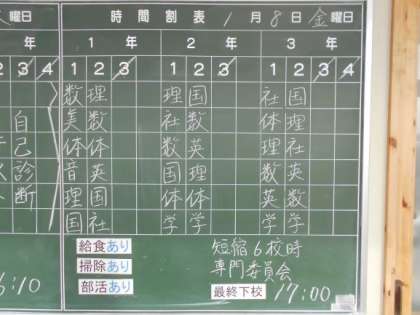 曜日 時間割表 1月8日金曜日
年 1年 2年 3年
2 3 4 1 2 3 1 2 3 1 2 3 4
数 理 理 国 社 国
自 美 数 社 数 体 理
己 体 体 数 英 理 社
診 音 英 国 理 数 英
断 理 国 体 体 英 数
国 社 学 学 学 学
給食あり 短縮6校時
掃除あり 専門委員会
部活あり 最終下校 17:00
:10